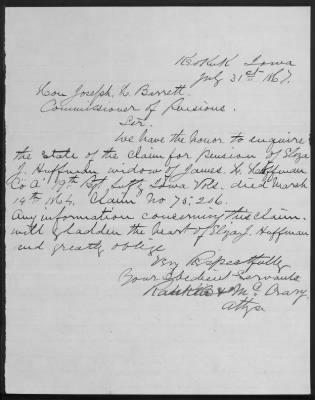 Keokuk Iowa
July 31st 1867.
Hon Joseph H. Barrett.
Commissioner of Pensions.
Sir.
We have the honor to enquire
the state of the Claim for Pension of Eliza
J. Huffman widow of James. H. Huffman
Co "A" 19th Reg Inft, Iowa Vols. died March
14th 1864. Claim No 75.206.
Any information concerning this claim.
will gladden the heart of Eliza J. Huffman
and greatly oblige
Very Respectfully
Your Obedient Servants
& McCrary
attys